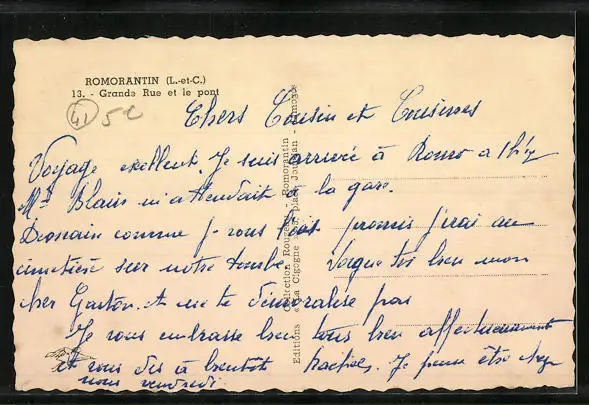 ROMORANTIN (L.-et-C.)
13. - Grande Rue et le pont
41 5€
Chers Cousin et Cousines
Voyage excellent. Je suis arrivée à Romo a
Mr Blain m'attendait à la gare.
Demain comme je vous l'ai promis j'irai au
cimetière sur notre tombe bien mon
cher Gaston et ne te démoralise pas
Je vous embrasse bien tous bien affectueusement
et vous dis à bientôt Rachel. Je pense être chez
nous vendredi
Collection Rouger - Romorantin
Editions « La Cigogne »